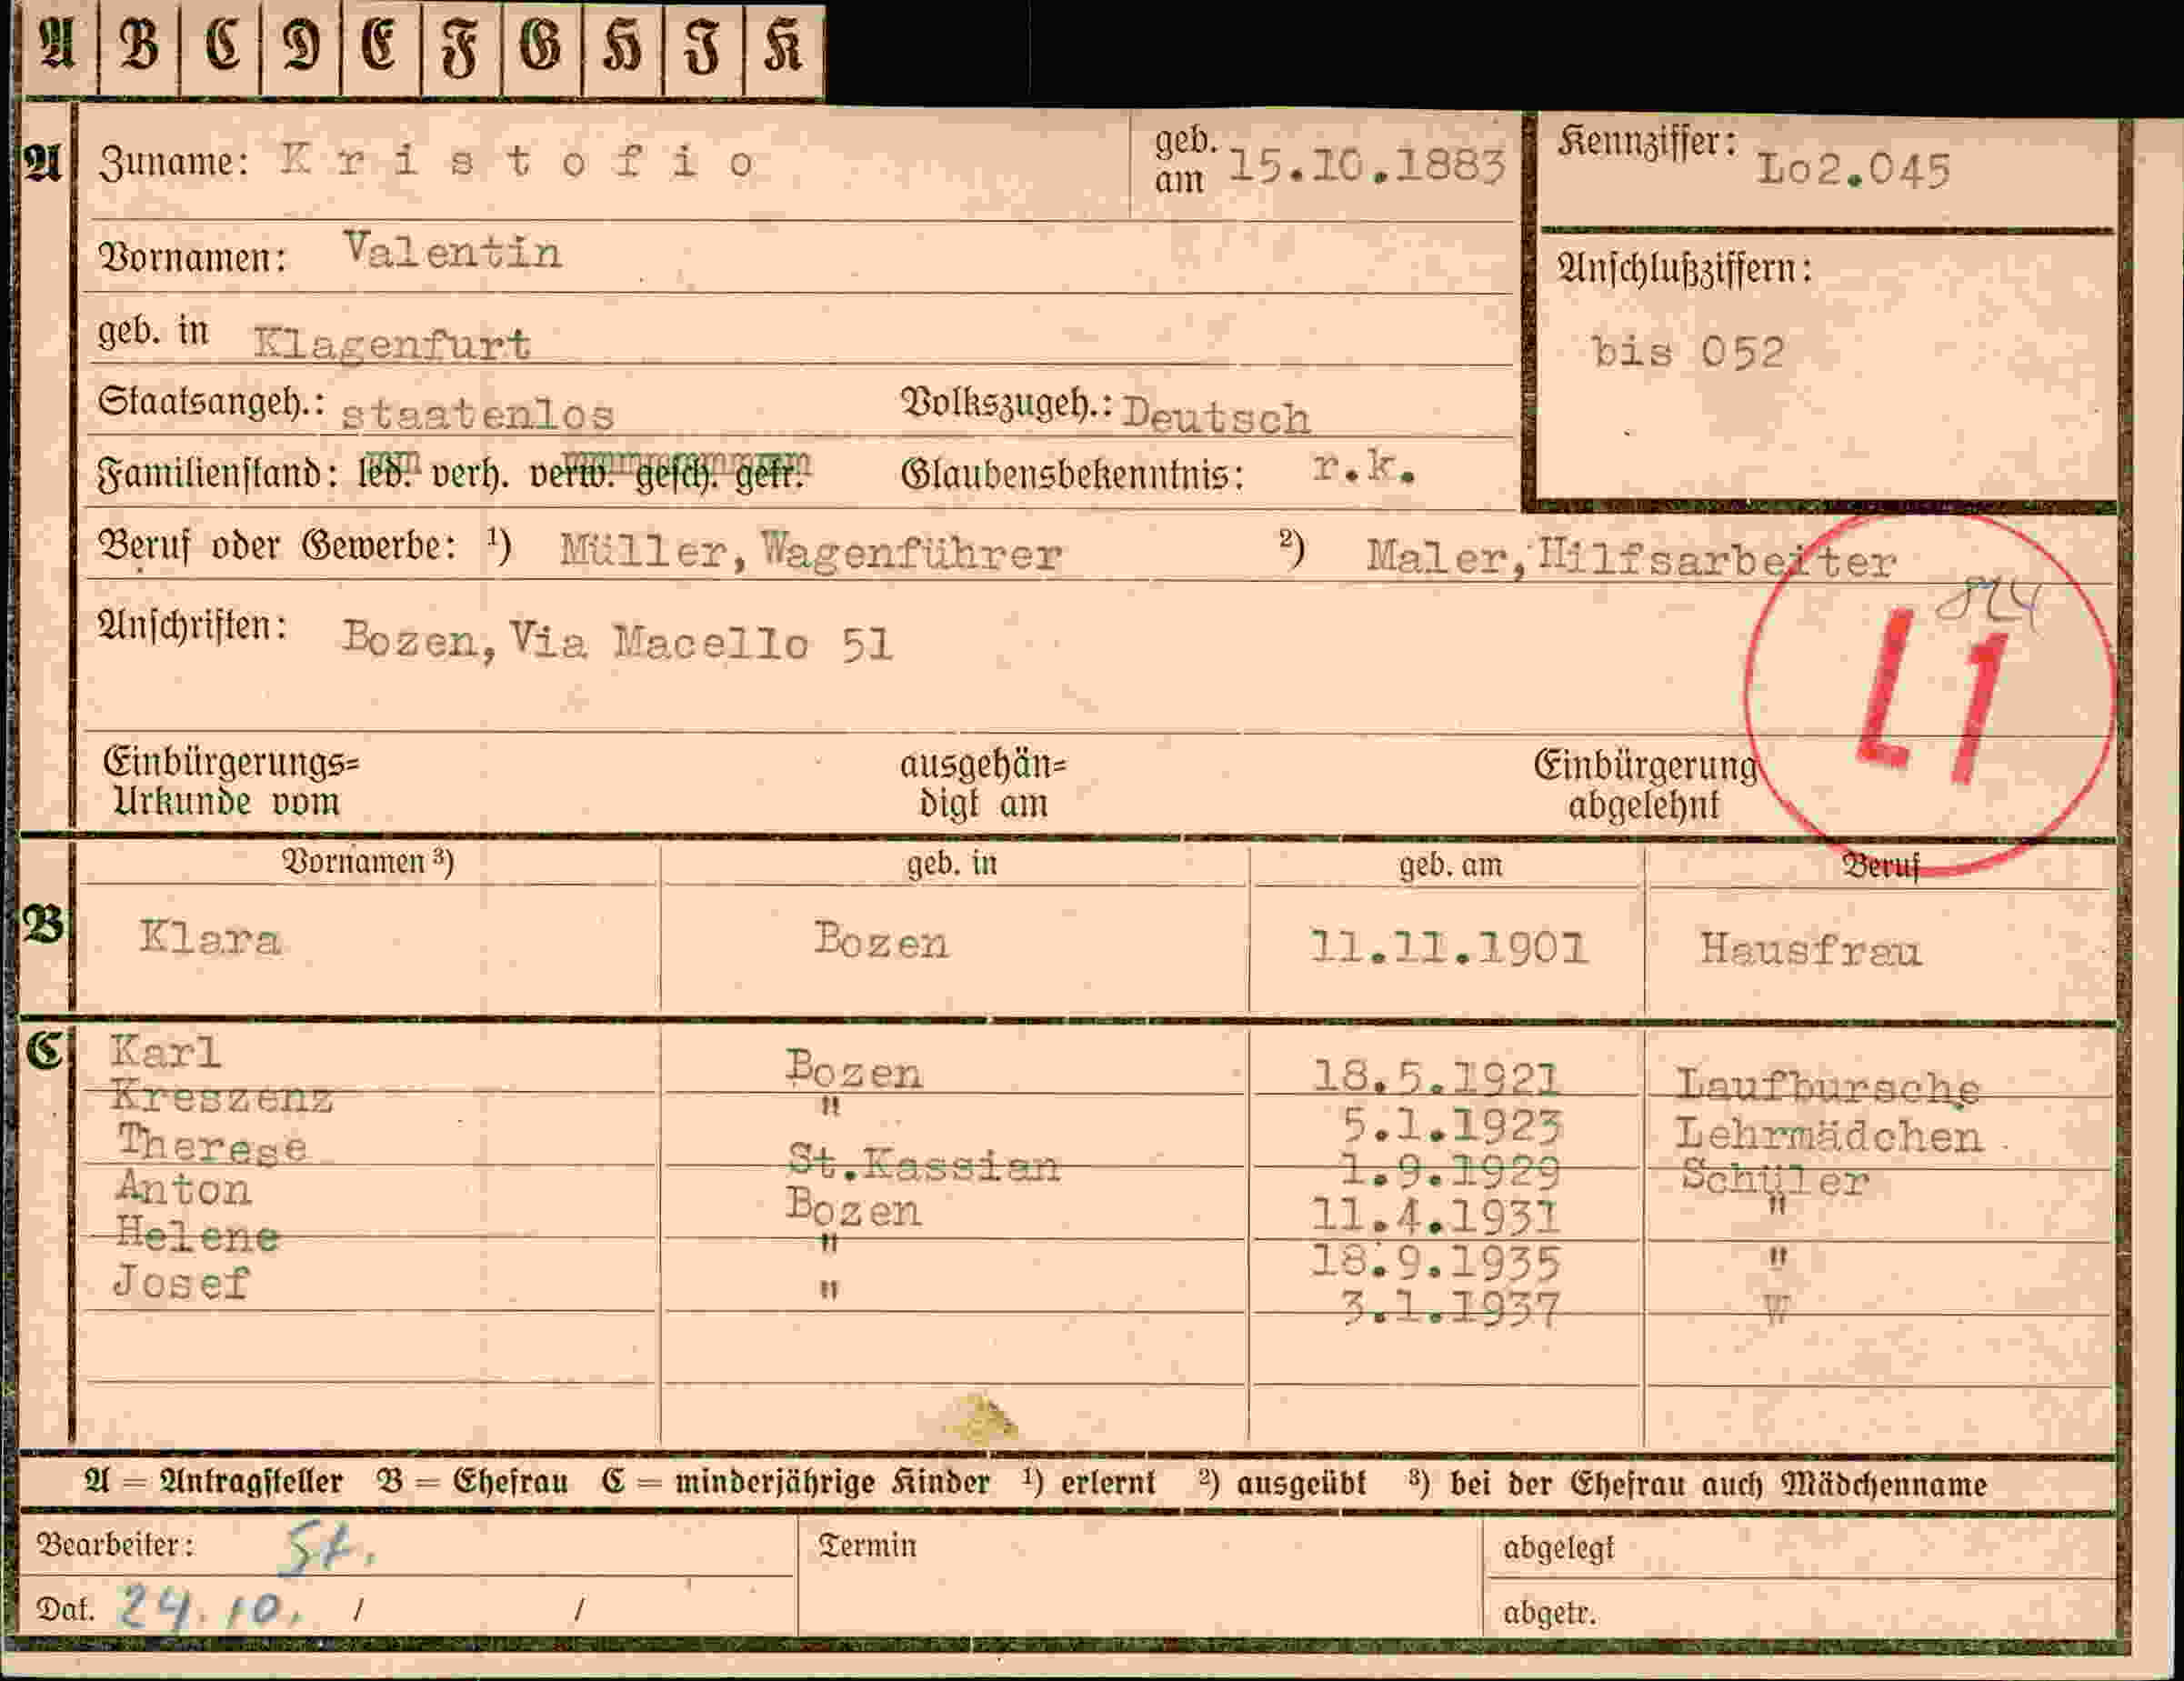 A B C D E F G H I K
A Zuname: Kristofio geb. am 15.10.1883 Kennziffer: Lo2.045
Vornamen: Valentin
Anschlußziffern:
geb. in Klagenfurt
bis 052
Staatsangeh.: staatenlos Volkszugeh.: Deutsch
Familienstand: led. verh. verw. gesch. getr. Glaubensbekenntnis: r.k.
Beruf oder Gewerbe: ¹) Müller, Wagenführer ²) Maler, Hilfsarbeiter
Anschriften: Bozen, Via Macello 51
L1
Einbürgerungs= ausgehän= Einbürgerung
Urkunde vom digt am abgelehnt
Vornamen ³) geb. in geb. am Beruf
B Klara Bozen 11.11.1901 Hausfrau
C Karl Bozen 18.5.1921 Laufbursche
Kreszenz " 5.1.1923 Lehrmädchen
Therese St.Kassian 1.9.1929 Schüler
Anton Bozen 11.4.1931 "
Helene " 18.9.1935 "
Josef " 3.1.1937 "
A = Antragsteller B = Ehefrau C = minderjährige Kinder ¹) erlernt ²) ausgeübt ³) bei der Ehefrau auch Mädchenname
Bearbeiter: St. Termin abgelegt
Dat. 24.10. / / abgetr.